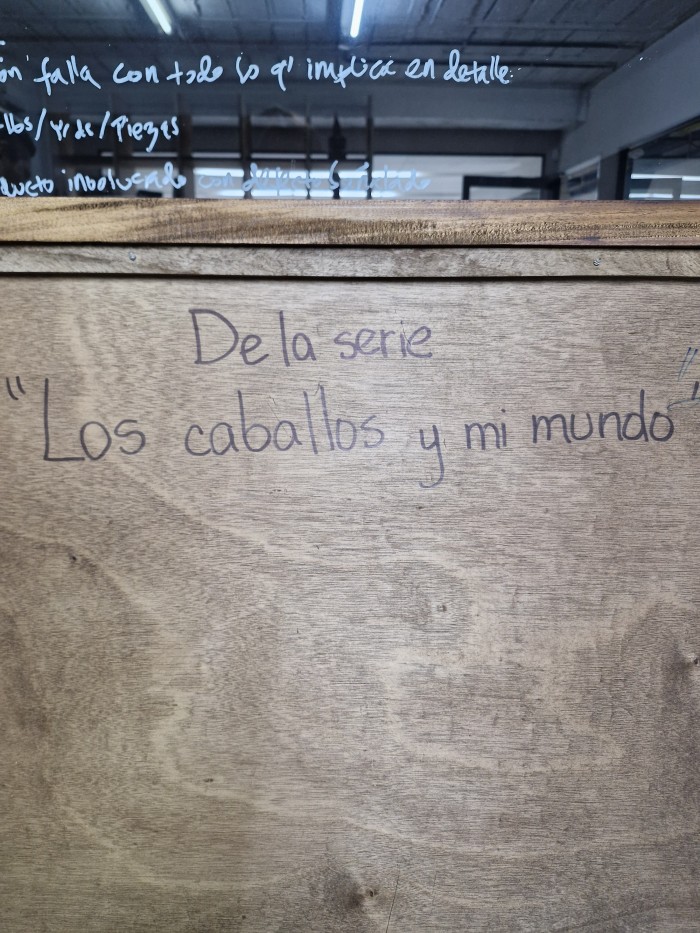 ón falla con todo lo q' implica en detalle.
lbs/yrds/Piezas
ducto involucrado con
De la serie
"Los caballos y mi mundo"